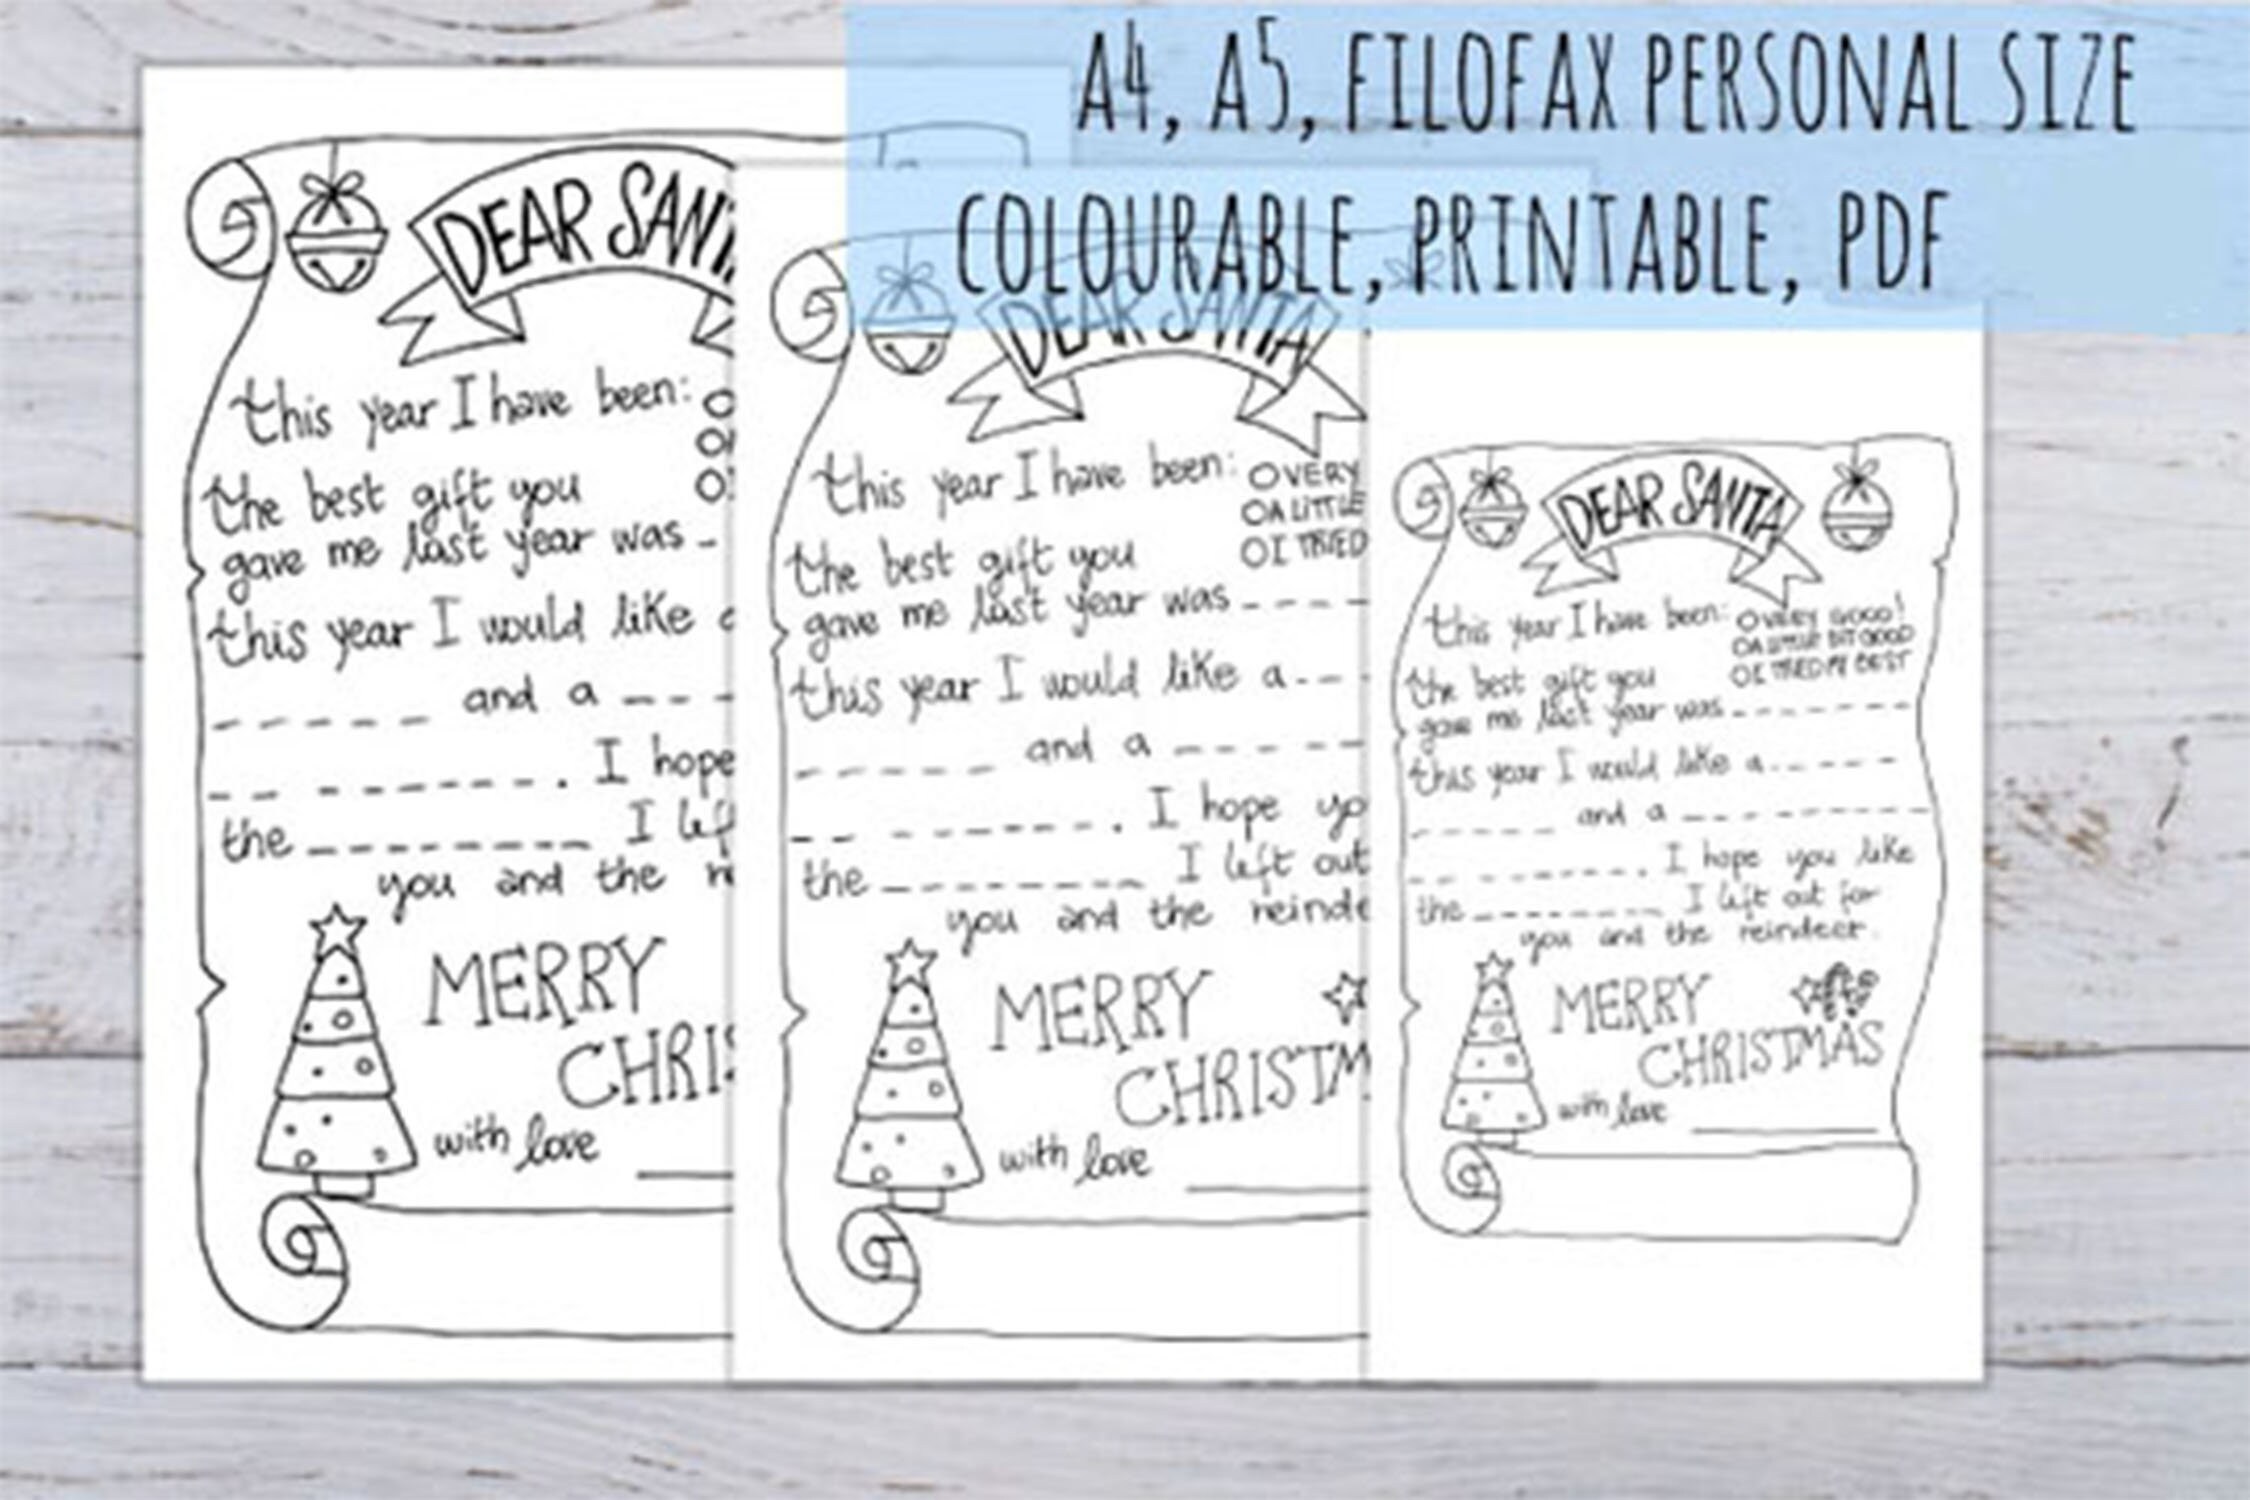 A4, A5, FILOFAX PERSONAL SIZE
COLOURABLE, PRINTABLE, PDF
DEAR SANT
this year I have been:
the best gift you
gave me last year was
this year I would like
and a
I hope
the I lef
you and the
MERRY
CHRIS
with love
DEAR SANTA
this year I have been: VERY
A LITTLE
I TRIED
the best gift you
gave me last year was
this year I would like a
and a
. I hope yo
the I left out
you and the reinde
MERRY
CHRISTM
with love
DEAR SANTA
this year I have been: VERY GOOD!
A LITTLE BIT GOOD
I TRIED MY BEST
the best gift you
gave me last year was
this year I would like a
and a
. I hope you like
the I left out for
you and the reindeer.
MERRY
CHRISTMAS
with love